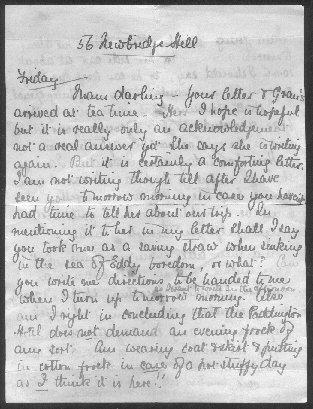 56 Newbridge Hill
Friday
Mums darling - Your letter & Gran's
arrived at tea time. Hers I hope is hopeful
but it is really only an acknowledgement
not a real answer yet. She says she is writing
again. But it is certainly a comforting letter.
I am not writing though till after I have
seen you tomorrow morning in case you haven't
had time to tell her about our trip. In
mentioning it to her in my letter shall I say
you took me as a saving straw when sinking
in the sea of Eddy boredom, or what?
you write me directions to be handed to me
when I turn up tomorrow morning. Also
am I right in concluding that the Paddington
Hotel does not demand an evening frock of
any sort. Am wearing coat & skirt & putting
in cotton frock in case of a hot stuffy day
as I think it is here.